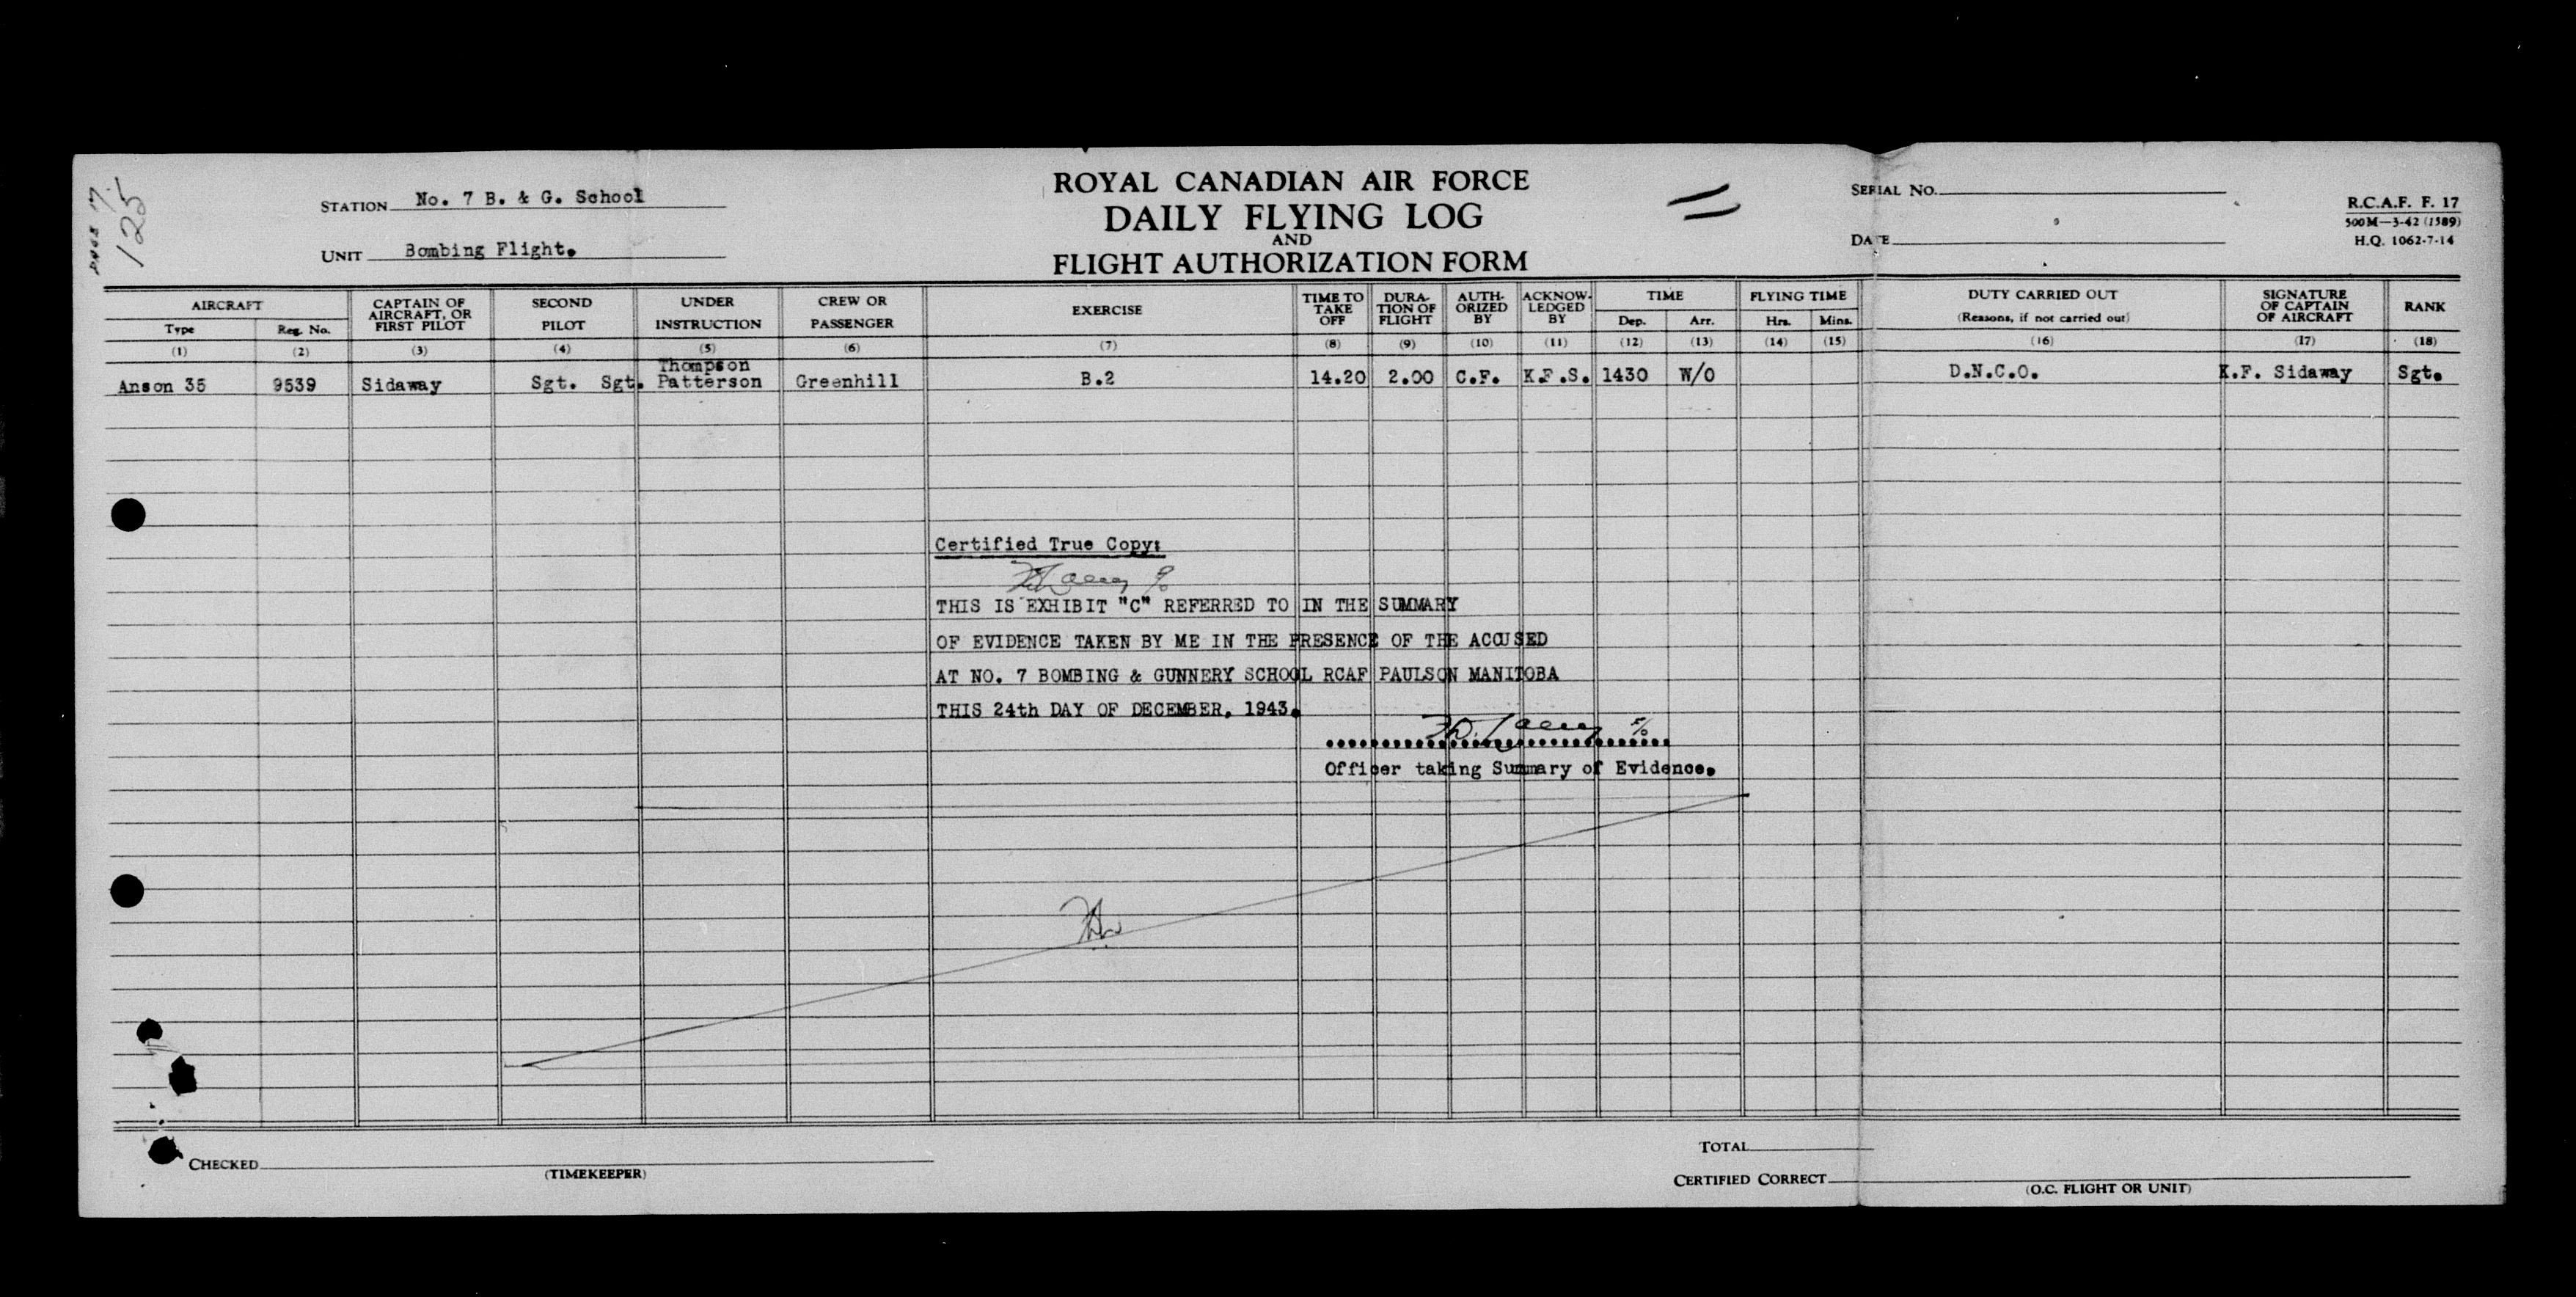 125
STATION No. 7 B. & G. School
UNIT Bombing Flight.
ROYAL CANADIAN AIR FORCE
DAILY FLYING LOG
AND
FLIGHT AUTHORIZATION FORM
SERIAL NO.
DATE
R.C.A.F. F. 17
500M—3-42 (1589)
H.Q. 1062-7-14
AIRCRAFT Type Reg. No. CAPTAIN OF AIRCRAFT, OR FIRST PILOT SECOND PILOT UNDER INSTRUCTION CREW OR PASSENGER EXERCISE TIME TO TAKE OFF DURA- TION OF FLIGHT AUTH- ORIZED BY ACKNOW- LEDGED BY TIME Dep. Arr. FLYING TIME Hrs. Mins. DUTY CARRIED OUT (Reasons, if not carried out) SIGNATURE OF CAPTAIN OF AIRCRAFT RANK
(1) (2) (3) (4) (5) (6) (7) (8) (9) (10) (11) (12) (13) (14) (15) (16) (17) (18)
Thompson
Anson 35 9539 Sidaway Sgt. Sgt. Patterson Greenhill B.2 14.20 2.00 C.F. K.F.S. 1430 W/O D.N.C.O. K.F. Sidaway Sgt.
Certified True Copy:
THIS IS EXHIBIT "C" REFERRED TO IN THE SUMMARY
OF EVIDENCE TAKEN BY ME IN THE PRESENCE OF THE ACCUSED
AT NO. 7 BOMBING & GUNNERY SCHOOL RCAF PAULSON MANITOBA
THIS 24th DAY OF DECEMBER, 1943.
Officer taking Summary of Evidence.
TOTAL
CHECKED
(TIMEKEEPER)
CERTIFIED CORRECT
(O.C. FLIGHT OR UNIT)